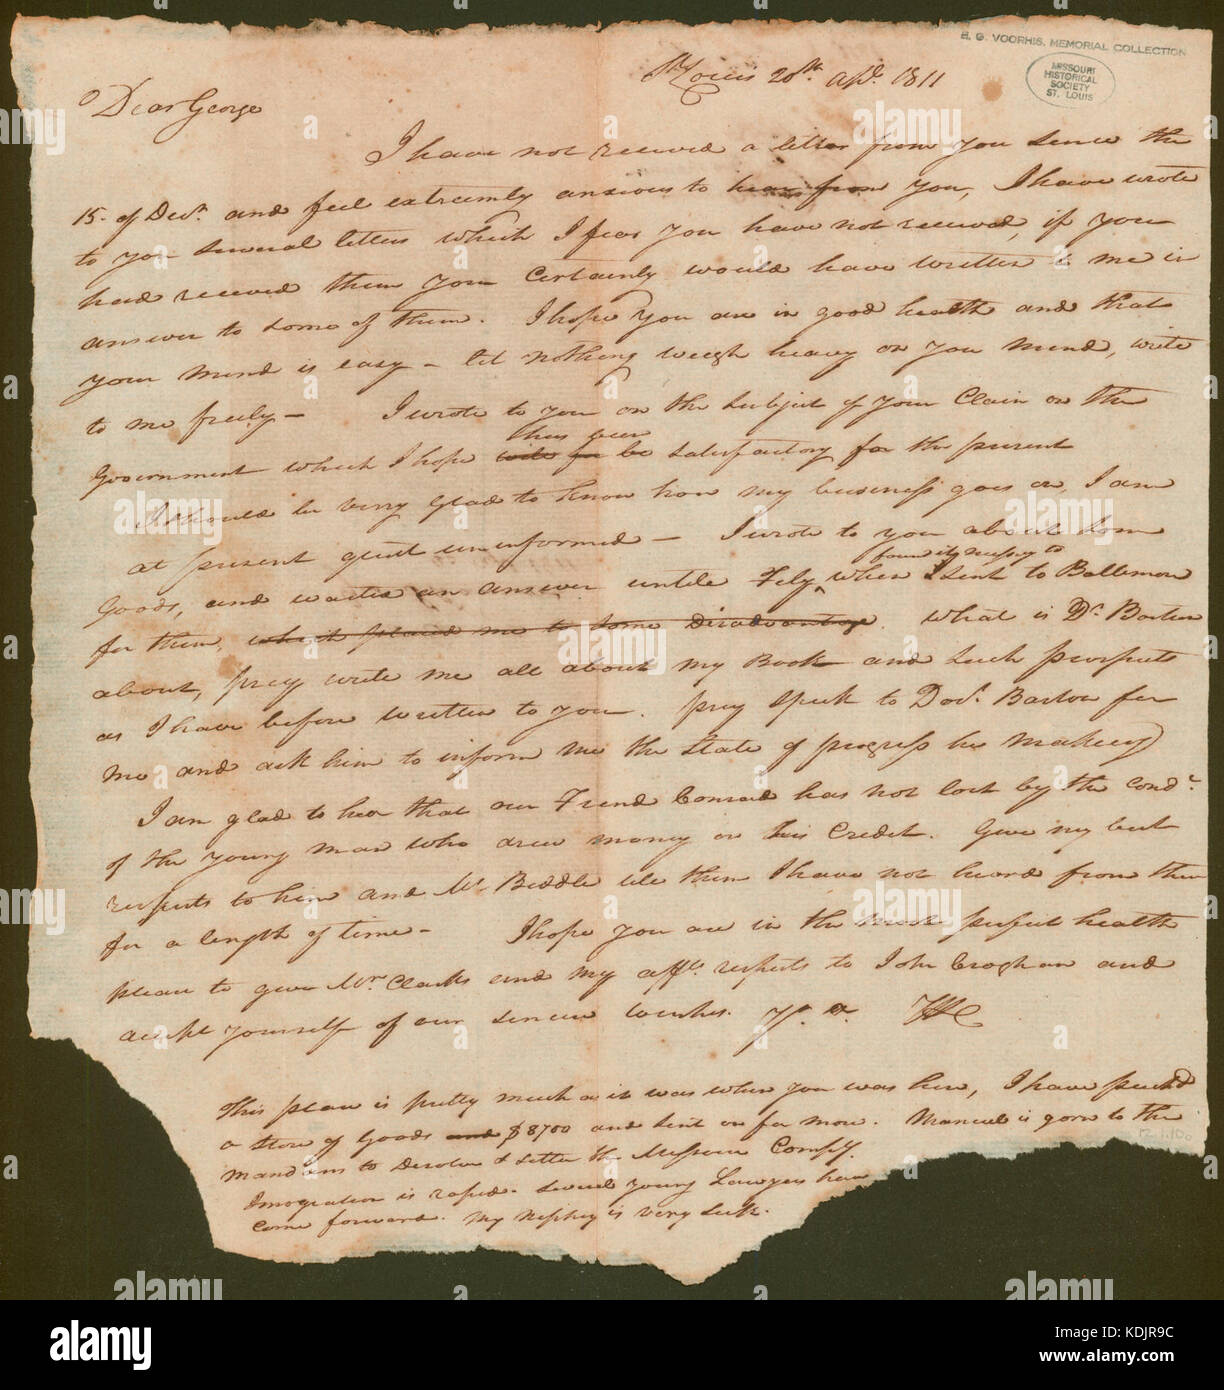 E. G. VOORHIS, MEMORIAL COLLECTION
MISSOURI
HISTORICAL
SOCIETY
ST. LOUIS
St. Louis 20th apl. 1811
Dear George
I have not received a letter from you sence the
15. of Decr. and feel extreemly anxious to hear from you, I have wrote
to you several letters which I fear you have not received, if you
had received them you certainly would have written to me in
answer to some of them. I hope you are in good health and that
your mind is easy - let nothing weigh heavy on you mind, write
to me freely - I wrote to you on the subject of your Claim on the
thus
Government which I hope will be satisfactory for the present
I should be very glad to know how my business goes on, I am
at present quit uninformed - I wrote to you about Som
found it necessy to
Goods, and waited an answer untill Feby, when I sent to Baltimore
for them, which placed me to some disadvantage. What is Dr. Barton
about, pray write me all about my Book and such prospects
as I have before written to you. pray Speek to Doct. Barton for
me and ask him to inform me the State of progress he makeing
I am glad to hear that our Frend Conrad has not lost by the condt.
of the young man who drew money on his Credit. Give my best
respects to him and Mr. Biddle tele them I have not heard from them
for a length of time - I hope you are in the most perfect health
please to give Mrs. Clarks and my affts. respects to John Croghan and
accept yourself of our sincere wishes. Yr. &c. WC
This place is pretty much as it was when you was here, I have
a store of Goods and $8700 and sent on for more. Manuel is gorn to the
mandans to disolve & settle the Missouri Compy.
Imogration is rapid. several young Lawyers have
come forward. my Nephey is very sick.
12-1.100
alamy
Image ID: KDJR9C
www.alamy.com